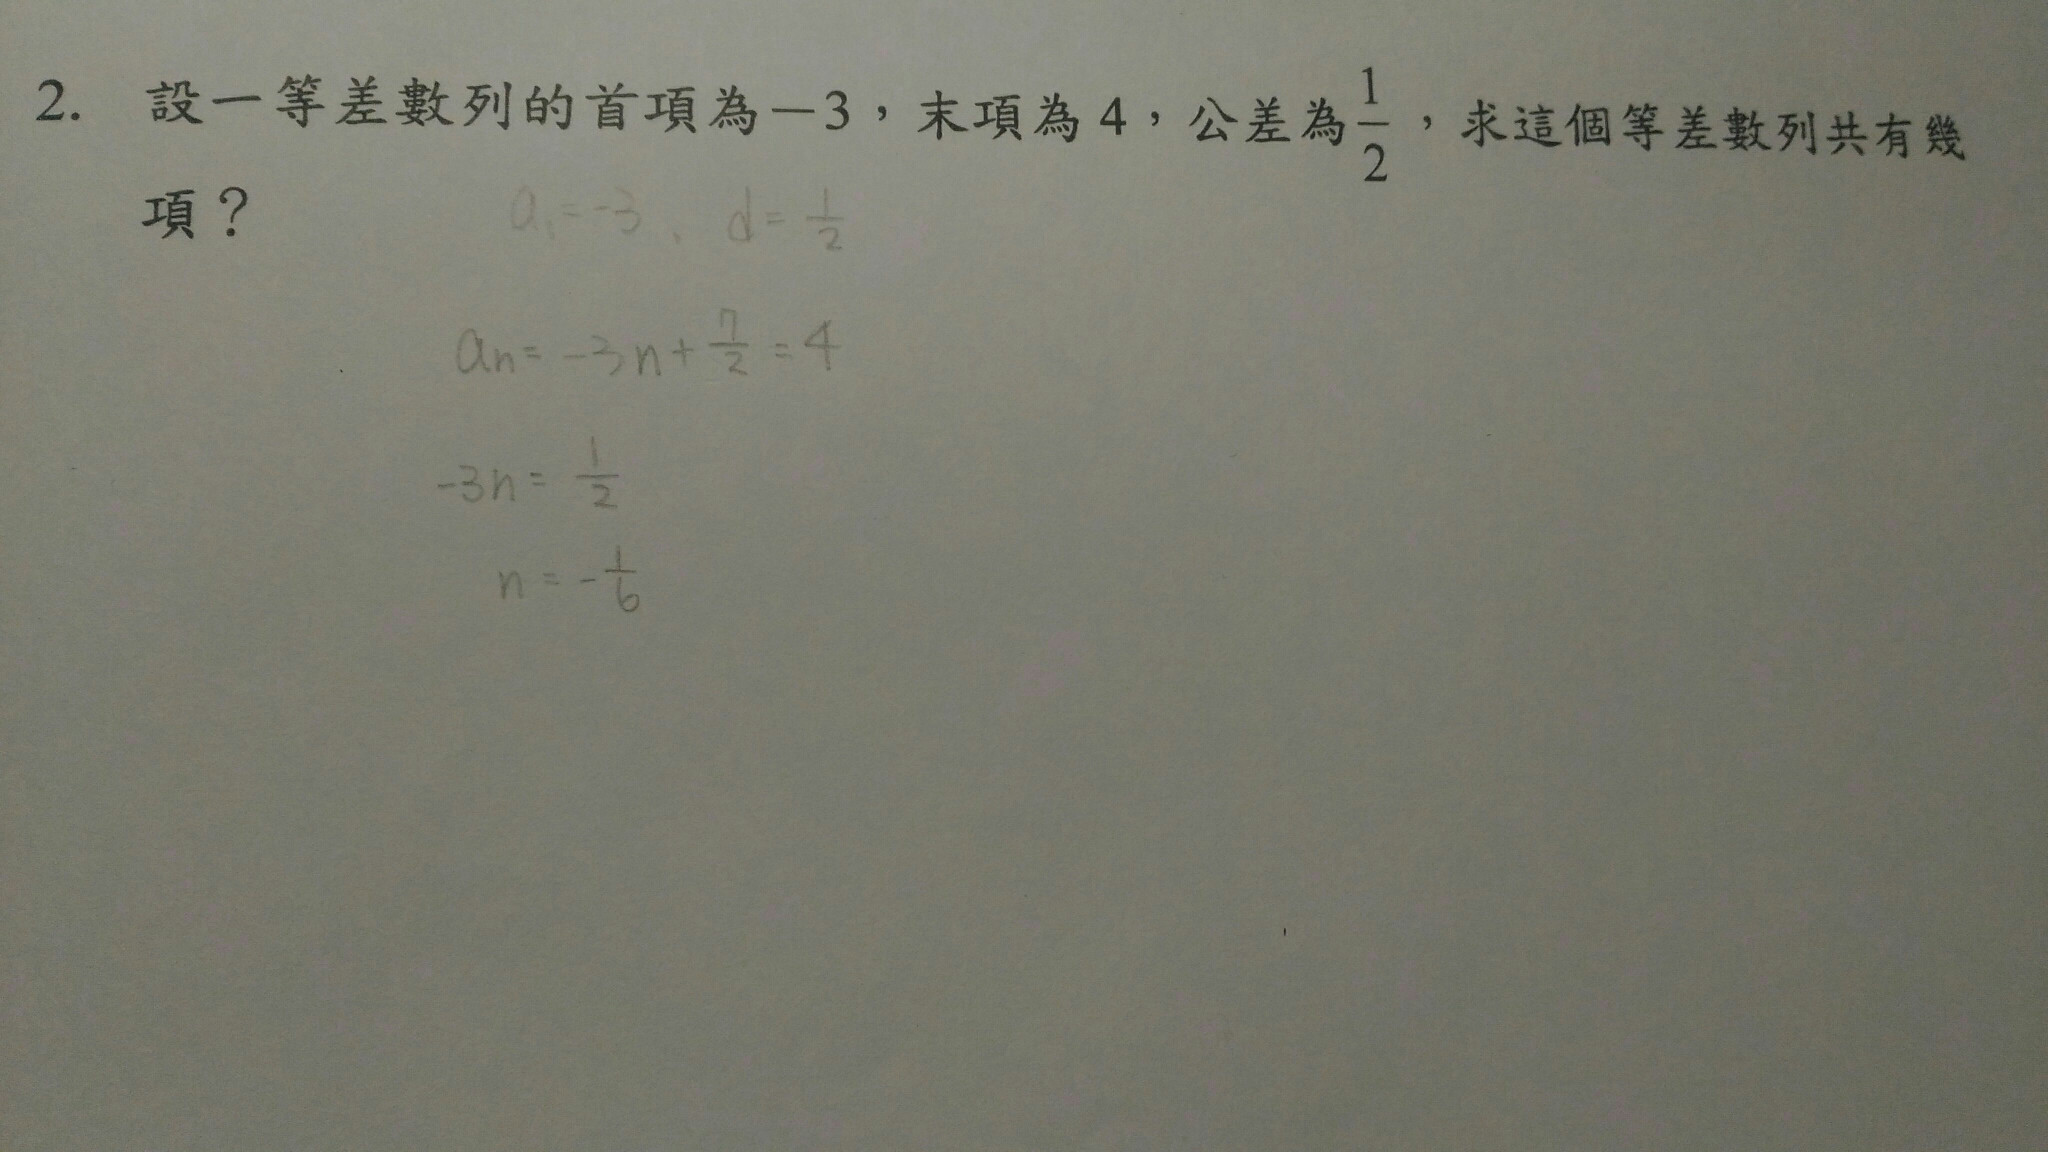 2. 設一等差數列的首項為-3，末項為4，公差為1/2，求這個等差數列共有幾
項？
a₁=-3、d=1/2
an=-3n+7/2=4
-3n=1/2
n=-1/6